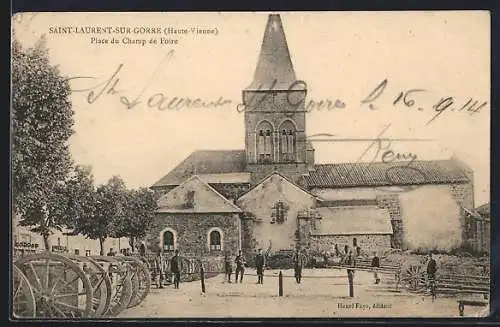 SAINT-LAURENT-SUR-GORRE (Haute-Vienne)
Place du Champ de Foire
St Laurent sur Gorre le 16-9-14
Remy
Henri Faye, Editeur